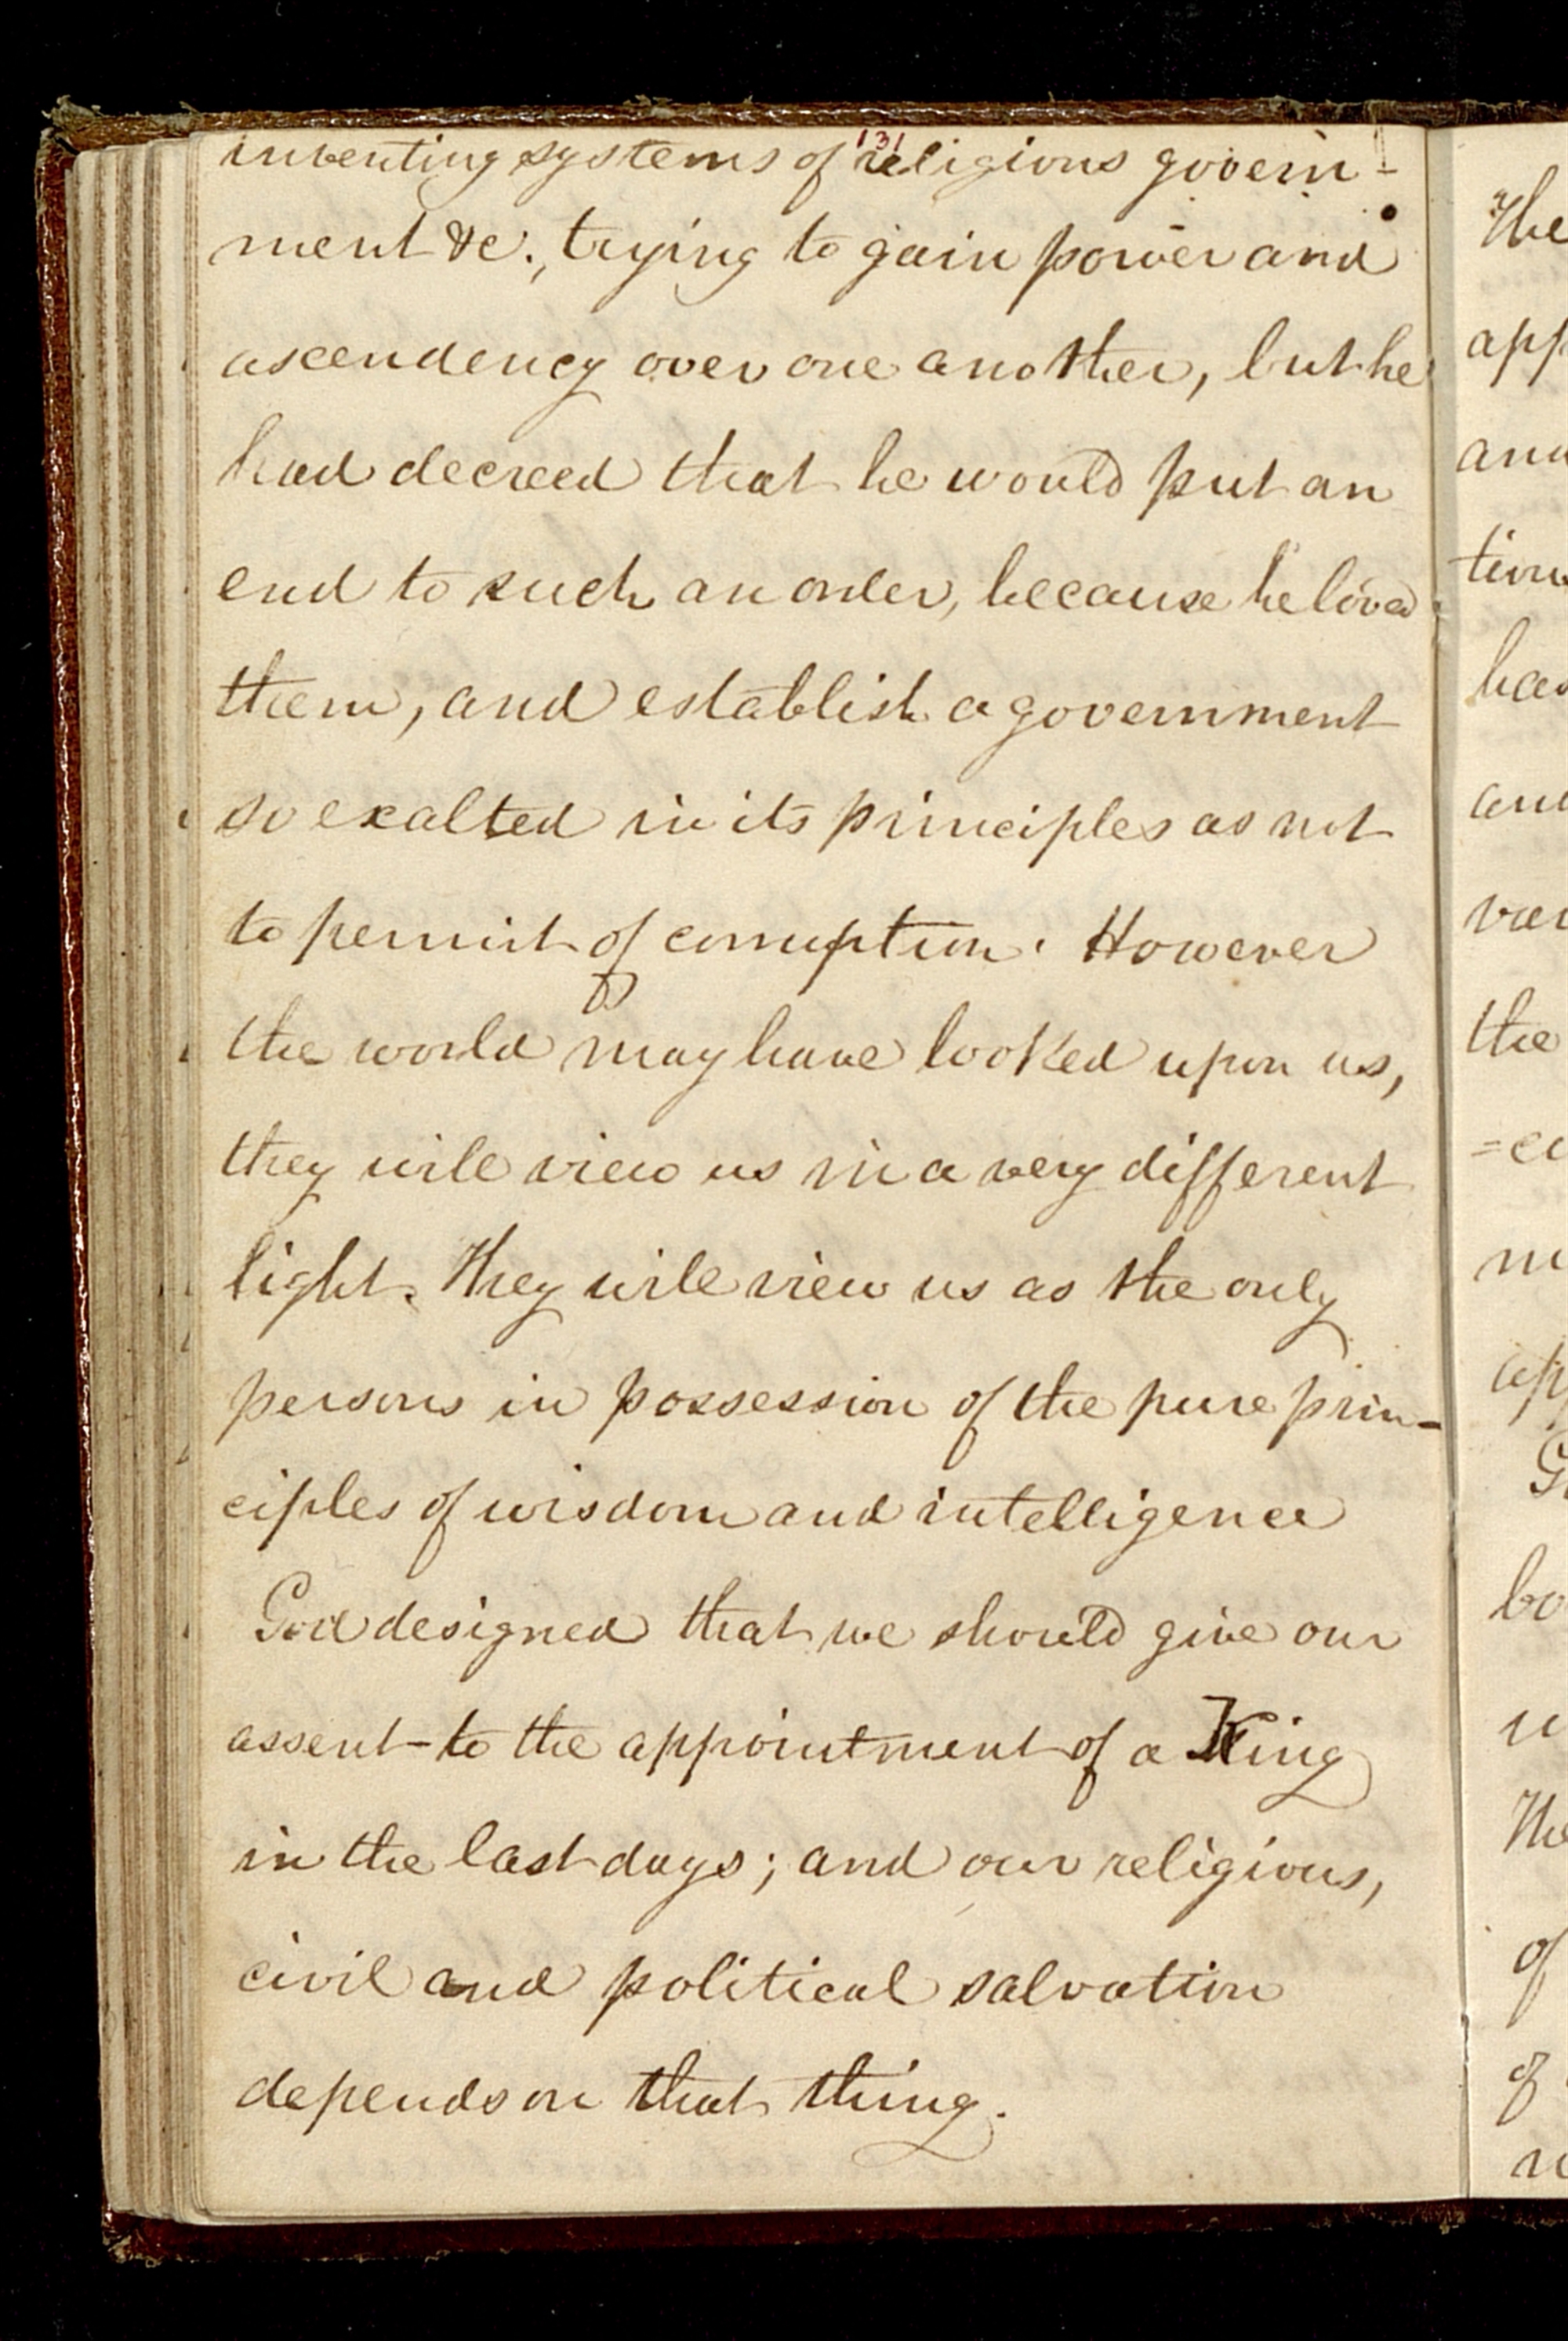 131
inventing systems of religious govern-
ment &c., trying to gain power and
ascendency over one another, but he
had decreed that he would put an
end to such an order, because he loved
them, and establish a government
so exalted in its principles as not
to permit of corruption. However
the world may have looked upon us,
they will view us in a very different
light. They will view us as the only
persons in possession of the pure prin-
ciples of wisdom and intelligence
God designed that we should give our
assent to the appointment of a King
in the last days; and our religious,
civil and political salvation
depends on that thing.
The
app
and
tion
has
and
var
the
=ce
m
ap
G
bo
u
The
of
of